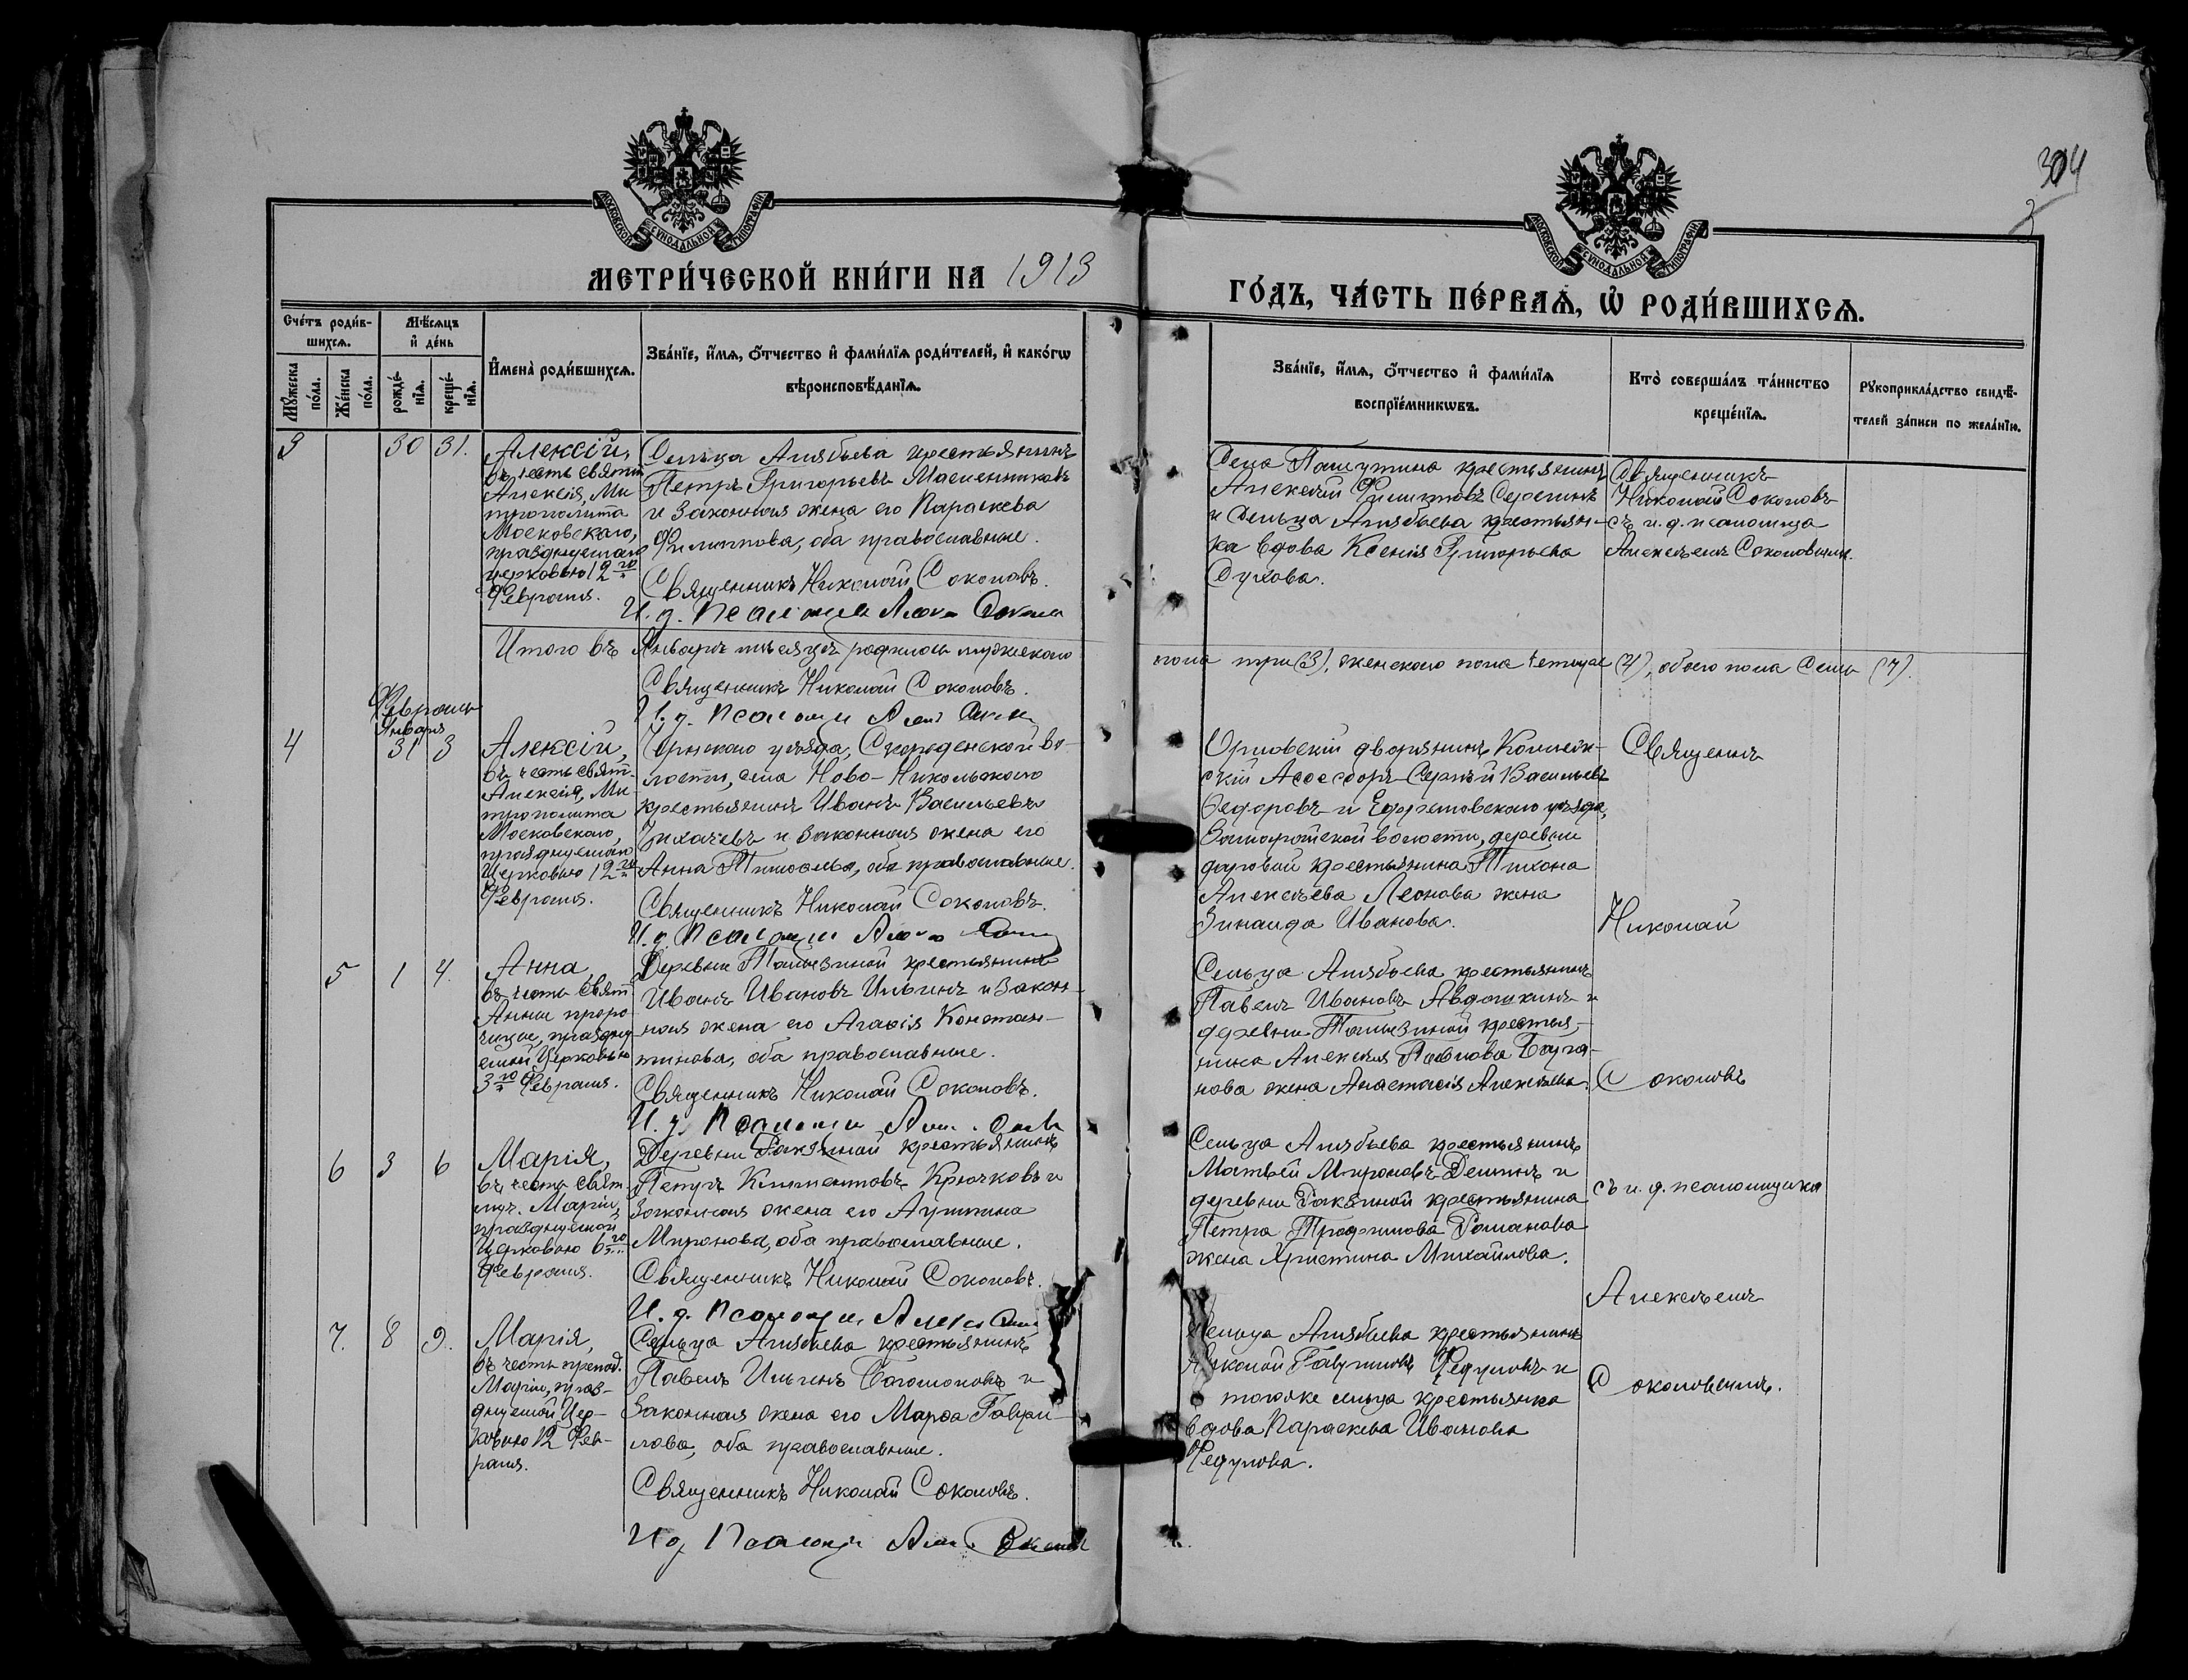 304
МОСКОВСКОЙ СѴНОДАЛЬНОЙ ТИПОГРАФІИ
МОСКОВСКОЙ СѴНОДАЛЬНОЙ ТИПОГРАФІИ
МЕТРИ́ЧЕСКОЙ КНИ́ГИ НА 1913
ГО́ДЪ, ЧА́СТЬ ПЕ́РВАѦ, Ѡ҆ РОДИ́ВШИХСѦ.
Сче́тъ роди́в-
шихсѧ.
Мѣ́сѧцъ
и҆ де́нь
Мꙋ́жеска
по́ла.
Же́нска
по́ла.
рожде́-
нїѧ.
креще́-
нїѧ.
И҆мена̀ роди́вшихсѧ.
Зва́нїе, и҆́мѧ, ѻ҆́тчество и҆ фами́лїѧ роди́телей, и҆ како́гѡ
вѣроисповѣ́данїѧ.
Зва́нїе, и҆́мѧ, ѻ҆́тчество и҆ фами́лїѧ
воспрїе́мникѡвъ.
Кто̀ соверша́лъ та́инство
креще́нїѧ.
Рꙋкоприкла́дство свидѣ́-
телей за́писи по жела́нїю.
3 30 31.
Алексій,
въ честь святит.
Алексія, Ми
трополита
Московскаго,
празднуемаго
церковью 12го
Февраля.
Сельца Алябьева крестьянинъ
Петръ Григорьевъ Масленниковъ
и законная жена его Параскева
Филиппова, оба православные.
Священникъ Николай Соколовъ.
И. д. Псаломщ
Села Пашутина крестьянинъ
Алексѣй Филипповъ Серегинъ
и Сельца Алябьева крестьян-
ка вдова Ксенія Григорьева
Сухова.
Священникъ
Николай Соколовъ
съ и. д. псаломщика
Алексѣемъ Соколовымъ.
Итого въ Январѣ мѣсяцѣ родилось мужескаго
пола три (3), женскаго пола четыре (4), обоего пола семь (7).
Священникъ Николай Соколовъ.
И. д. Псаломщ
Февраль
Января
4 31 3
Алексій,
въ честь свят.
Алексія, Ми
трополита
Московскаго,
празднуемаго
Церковью 12го
Февраля.
Чернскаго уѣзда, Скороденской во-
лости, села Ново-Никольскаго
крестьянинъ Иванъ Васильевъ
Лихачевъ и законная жена его
Анна Тимофеева, оба православные.
Священникъ Николай Соколовъ.
И. д. Псаломщ
Орловскій дворянинъ Коллеж-
скій Ассессоръ Сергѣй Васильевъ
Ѳедоровъ и Ефремовскаго уѣзда,
волости, деревни
крестьянина Тихона
Алексѣева Леонова жена
Зинаида Иванова.
Священникъ
Николай
5 1 4.
Анна,
въ честь свят.
Анны проро
чицы, праздну
емой Церковью
3го Февраля.
Деревни крестьянинъ
Иванъ Ивановъ Ильинъ и закон-
ная жена его Агаѳія Констан-
тинова, оба православные.
Священникъ Николай Соколовъ.
И. д. Псаломщ
Сельца Алябьева крестьянинъ
Павелъ Ивановъ Авдошкинъ и
деревни крестья-
нина Алексѣя Павлова
жена Анастасія Алексѣева.
Соколовъ
6 3 6
Марія,
въ честь свят.
муч. Маріи,
празднуемой
Церковью 6го
Февраля.
Деревни Ракзиной крестьянинъ
Петръ Климентовъ Крючковъ и
законная жена его Агриппина
Миронова, оба православные.
Священникъ Николай Соколовъ.
И. д. Псаломщ
Сельца Алябьева крестьянинъ
Матвѣй Мироновъ Деминъ и
деревни Ракзиной крестьянина
Петра Трофимова Романова
жена Христина Михайлова.
съ и. д. псаломщика
Алексѣемъ
7. 8 9.
Марія,
въ честь препод.
Маріи, праз-
днуемой Цер-
ковью 12 Фев-
раля.
Сельца Алябьева крестьянинъ
Павелъ Ильинъ Богомоловъ и
законная жена его Марѳа Гаври-
лова, оба православные.
Священникъ Николай Соколовъ.
И д Псаломщ
Сельца Алябьева крестьянинъ
Николай Гавриловъ Федуловъ и
тогоже сельца крестьянка
вдова Параскева Иванова
Федулова.
Соколовымъ.